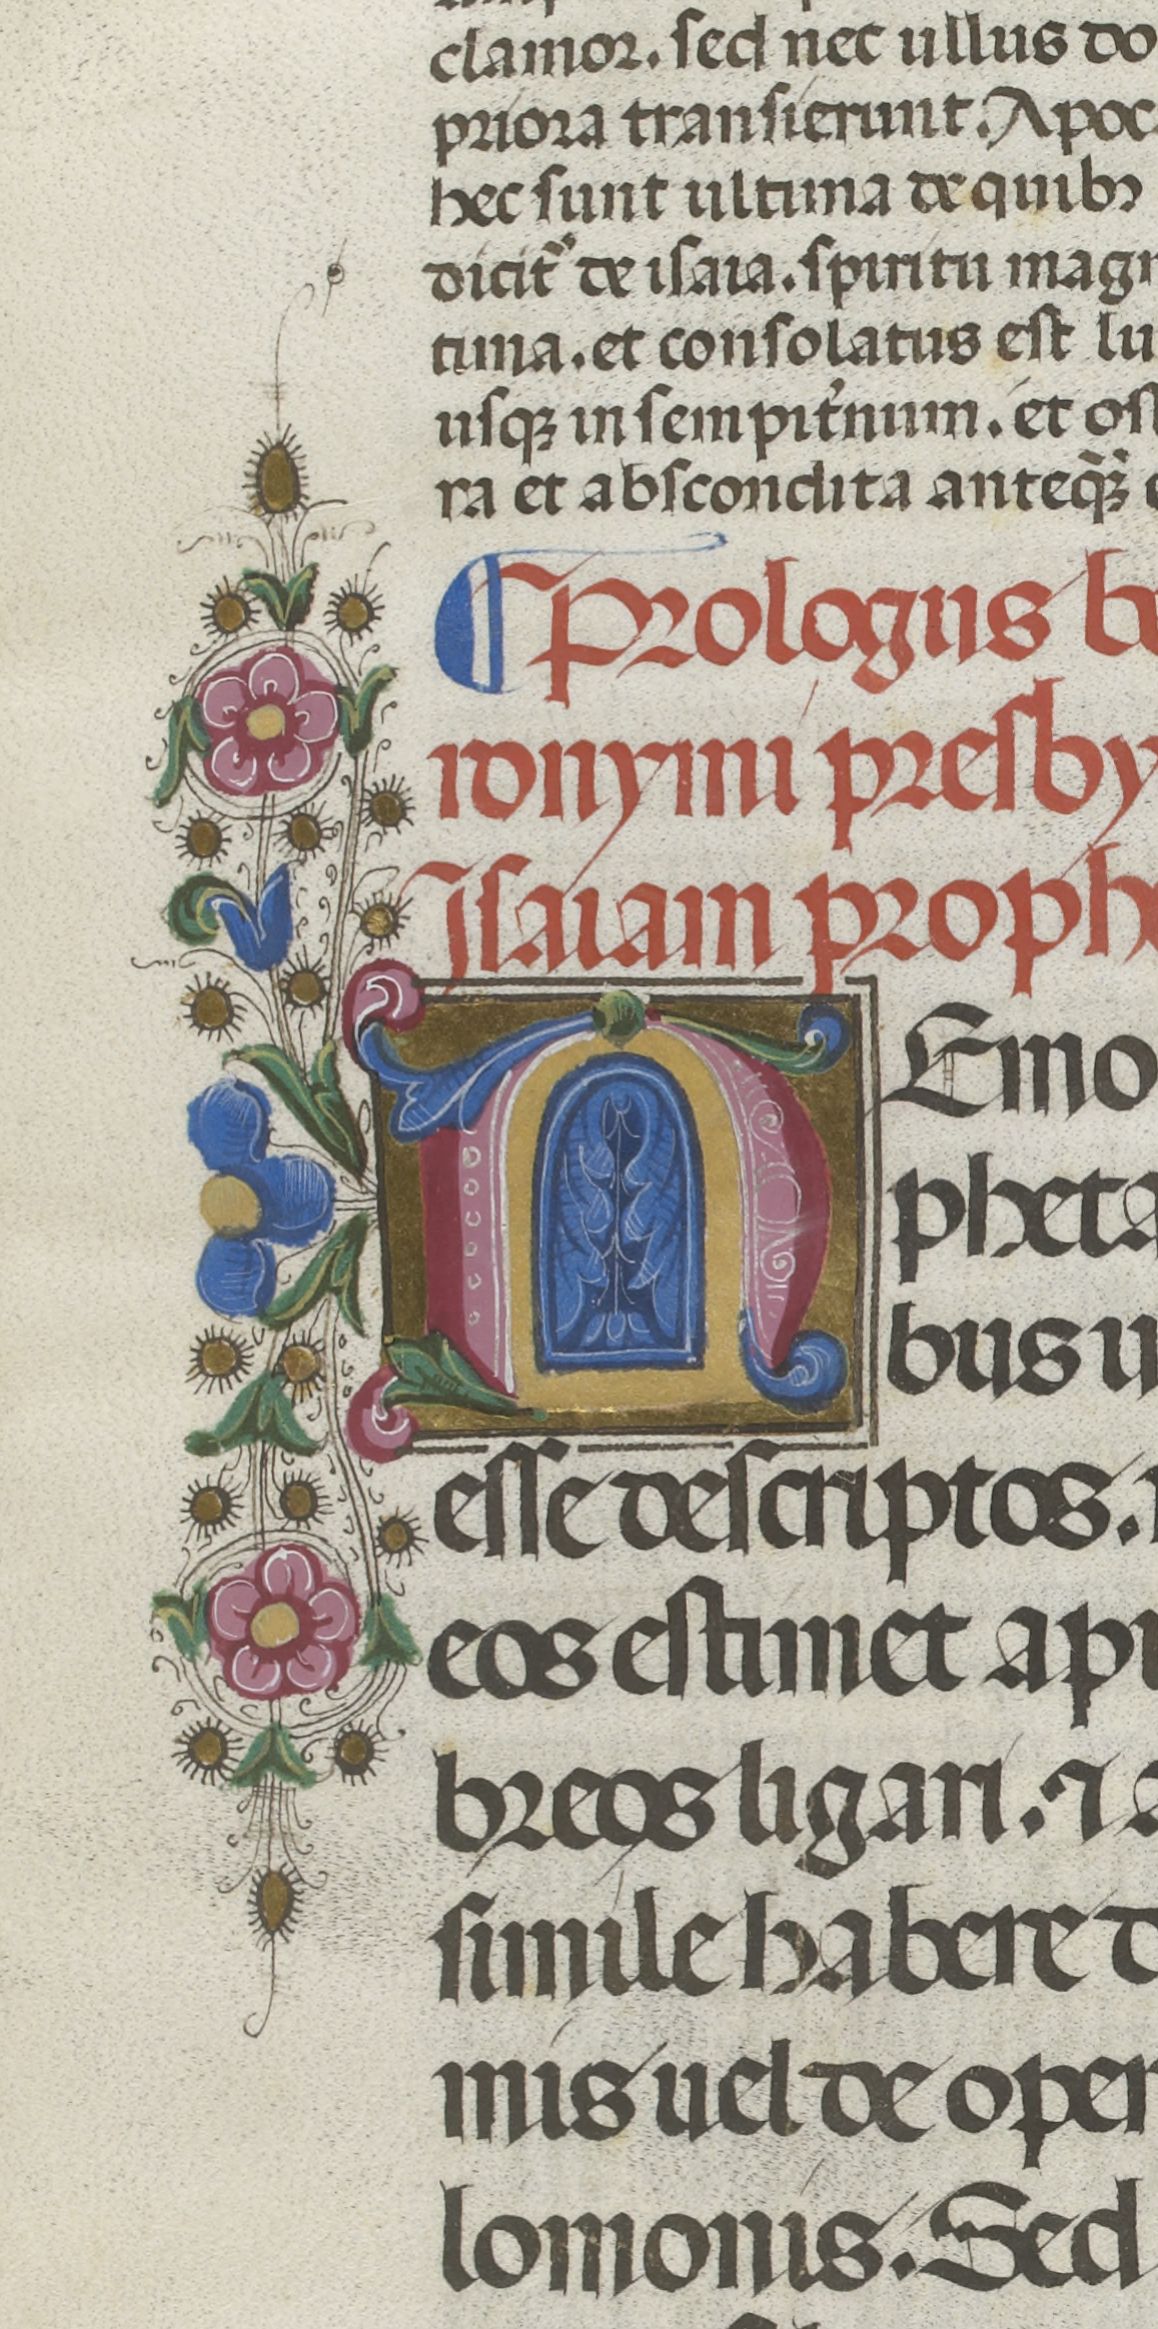 clamor. sed nec ullus do
priora transierunt. Apoc
hec sunt ultima de quibꝫ
dicit᷑ de isaia. spiritu magn
tima. et consolatus est lu
usqꝫ in sempit᷑num. et ost
ra et abscondita anteq̃ꝫ e
¶ Prologus be
ronymi presby
Isaiam prophe
N Emo
pheta
bus u
esse descriptos.
eos estimet apu
breos ligari. ⁊ a
simile habere
mis uel de oper
lomonis. Sed